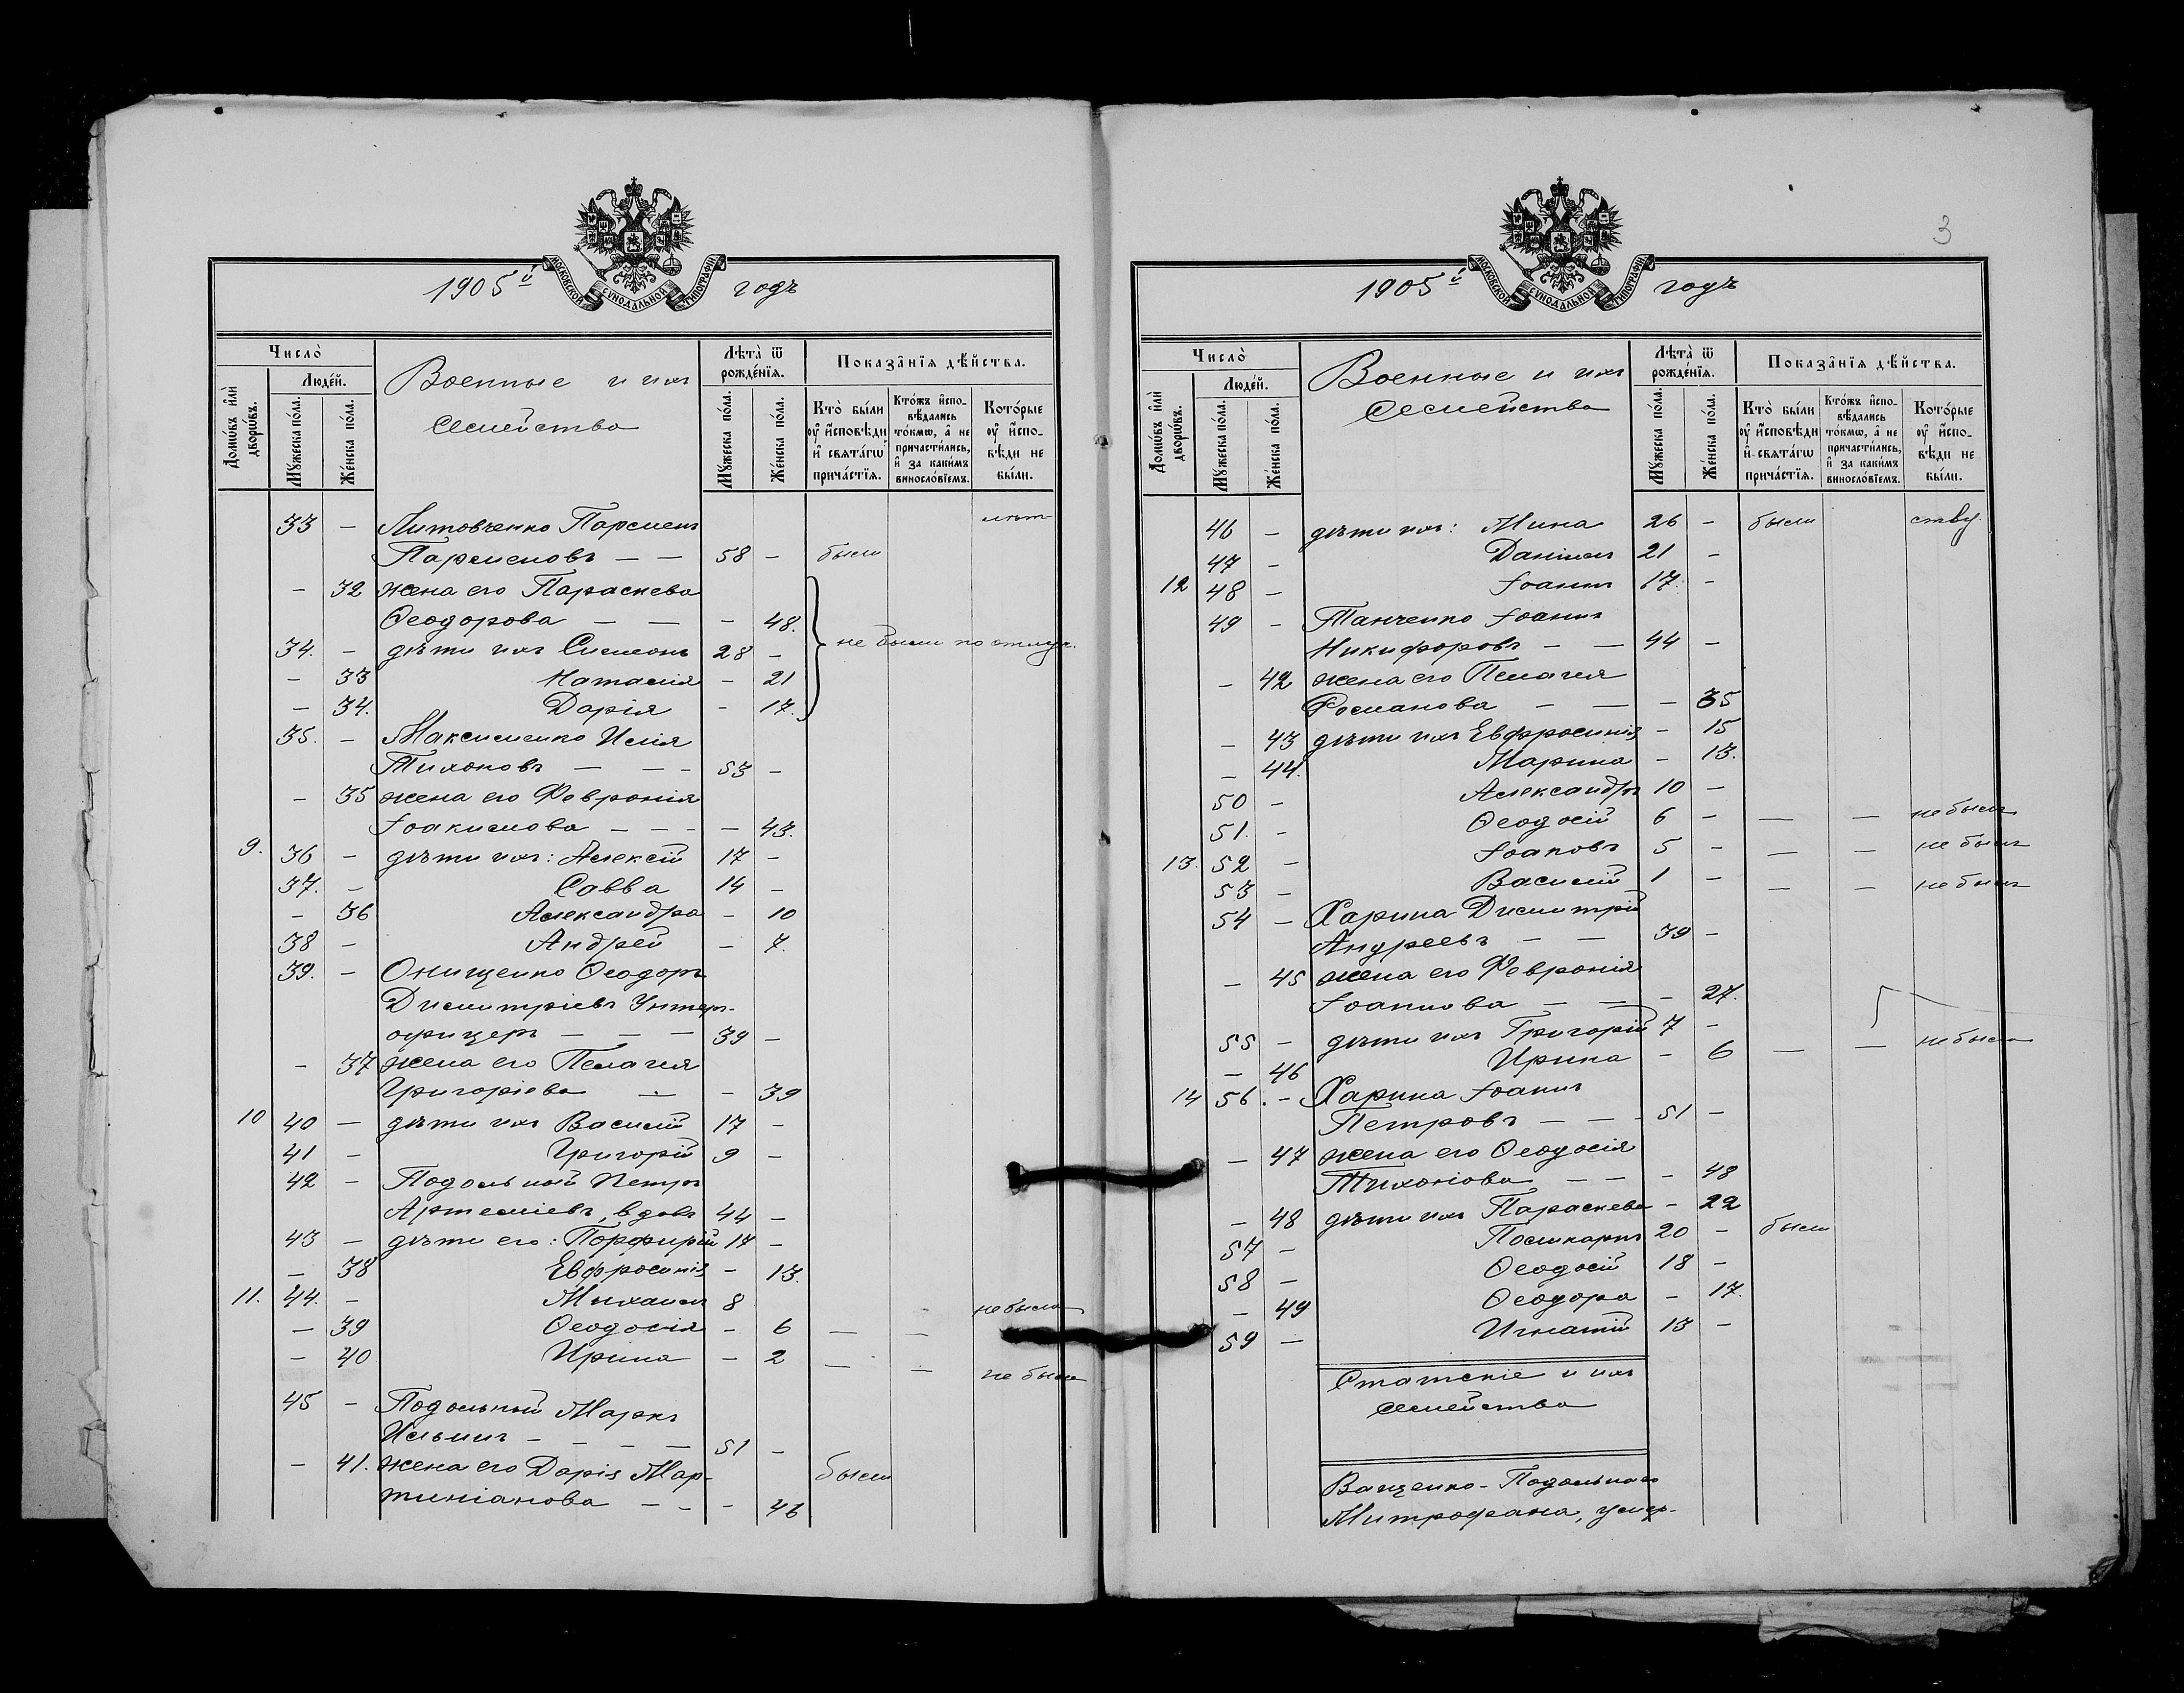 1905й годъ
МОСКОВСКОЙ СѴНОДАЛЬНОЙ ТИПОГРАФІИ
Число̀
Домѡ́въ и҆лѝ дворѡ́въ.
Люде́й.
Мꙋ́жеска по́ла.
Же́нска по́ла.
Военные и ихъ
семейства
Лѣ́та ѿ рожде́нїѧ.
Мꙋ́жеска по́ла.
Же́нска по́ла.
Показа̑нїѧ дѣ́йства.
Кто̀ бы́ли оу҆ и҆́сповѣди и҆ свѧта́гѡ прича́стїѧ.
Кто́жъ и҆спо-вѣ́дались то́кмѡ, а҆ не причасти́лись, и҆ за каки́мъ винословїемъ.
Кото́рые оу҆ и҆́спо-вѣди не бы́ли.
33 - Литовченко Парменъ
Парменовъ — — 58 - были
- 32 жена его Параскева
Ѳеодорова — — - 48.
34. - дѣти ихъ Симеонъ 28 - не были по отлуч.
- 33 Наталія - 21
- 34. Дарія - 17.
35. - Максименко Илія
Тихоновъ — - - 53 -
- 35 жена его Февронія
Іоакимова - - - - 43.
9. 36 - дѣти ихъ: Алексій 17 -
37. - Савва 14 -
- 36 Александра - 10
38 - Андрей - 7.
39. - Онищенко Ѳеодоръ
Димитріевъ Унтеръ-
офицеръ - - - 39 -
- 37 жена его Пелагея
Григоріева — - 39
10 40 - дѣти ихъ Василій 17 -
41 - Григорій 9 -
42 - Подольный Петръ
Артеміевъ, вдовъ 44 -
43 - дѣти его: Порфирій 17 -
- 38 Евфросинія - 13.
11. 44. - Михаилъ 8
- 39 Ѳеодосія - 6 — — не была
- 40 Ирина - 2 — — не была
45 - Подольный Маркъ
Ильинъ - - - - 51 -
- 41. жена его Дарія Мар- были
тиніанова - - - 46
3
1905й годъ
МОСКОВСКОЙ СѴНОДАЛЬНОЙ ТИПОГРАФІИ
Число̀
Домѡ́въ и҆лѝ дворѡ́въ.
Люде́й.
Мꙋ́жеска по́ла.
Же́нска по́ла.
Военные и ихъ
семейства
Лѣ́та ѿ рожде́нїѧ.
Мꙋ́жеска по́ла.
Же́нска по́ла.
Показа̑нїѧ дѣ́йства.
Кто̀ бы́ли оу҆ и҆́сповѣди и҆ свѧта́гѡ прича́стїѧ.
Кто́жъ и҆спо-вѣ́дались то́кмѡ, а҆ не причасти́лись, и҆ за каки́мъ винословїемъ.
Кото́рые оу҆ и҆́спо-вѣди не бы́ли.
46 - дѣти ихъ: Мина 26 - были ству.
47 - Даніилъ 21 -
12 48 - Іоаннъ 17. -
49 - Танченко Іоаннъ
Никифоровъ - — 44 -
- 42 жена его Пелагея
Романова - — - 35
- 43 дѣти ихъ Евфросинія - 15
- 44. Марина - 13.
50 - Александръ 10 -
51. - Ѳеодосій 6 - — — не былъ
13. 52 - Іоаковъ 5 - — — не былъ
53 - Василій 1 - — — не былъ
54 - Харина Димитрій
Андреевъ - — 39 -
- 45 жена его Февронія
Іоаннова - — - 27.
55 - дѣти ихъ Григорій 7 -
- 46 Ирина - 6 — — не была
14 56. - Харина Іоаннъ
Петровъ - - - 51 -
- 47 жена его Ѳеодосія
Тихонова - - - 48
- 48 дѣти ихъ Параскева - 22
57 - Поликарпъ 20 - были
58 - Ѳеодосій 18 -
- 49 Ѳеодора - 17.
59 - Игнатій 13 -
Статскіе и ихъ
семейства
Ващенко-Подольнаго
Митрофана, умер-